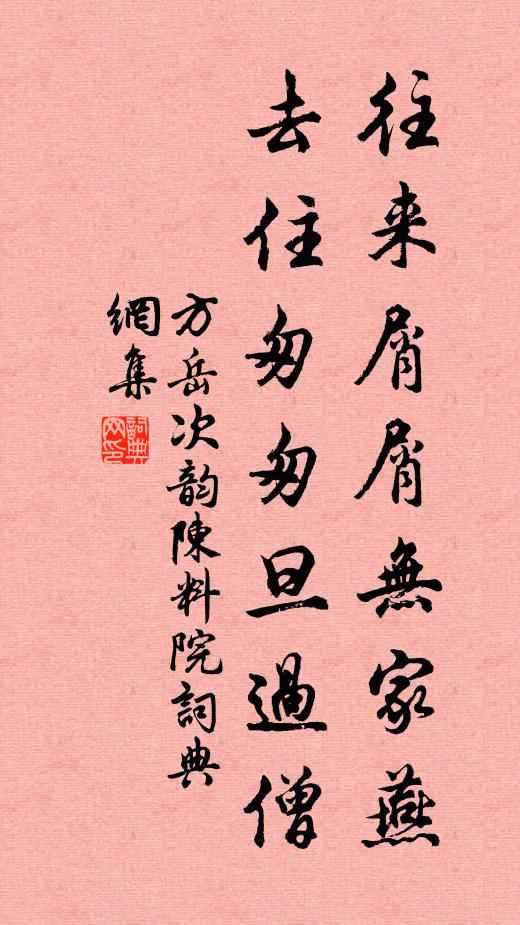 往来屑屑無家燕
去住匆匆旦過僧
方岳次韵陳料院詞典
網集
詞典
网印